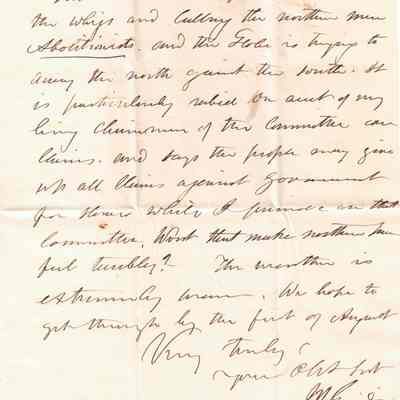 the whigs and calling the northern men
Abolitionists. and the Globe is trying to
array the north against the south. It
is particularly rabid on acct of my
being Chairman of the Committee on
Claims. and says the people may give
up all claims against Government
for slaves while I preside on that
Committee. Wont that make northern men
feel terribly? The weather is
extremely warm. We hope to
get through by the first of August
Very truly
your Obt Svt